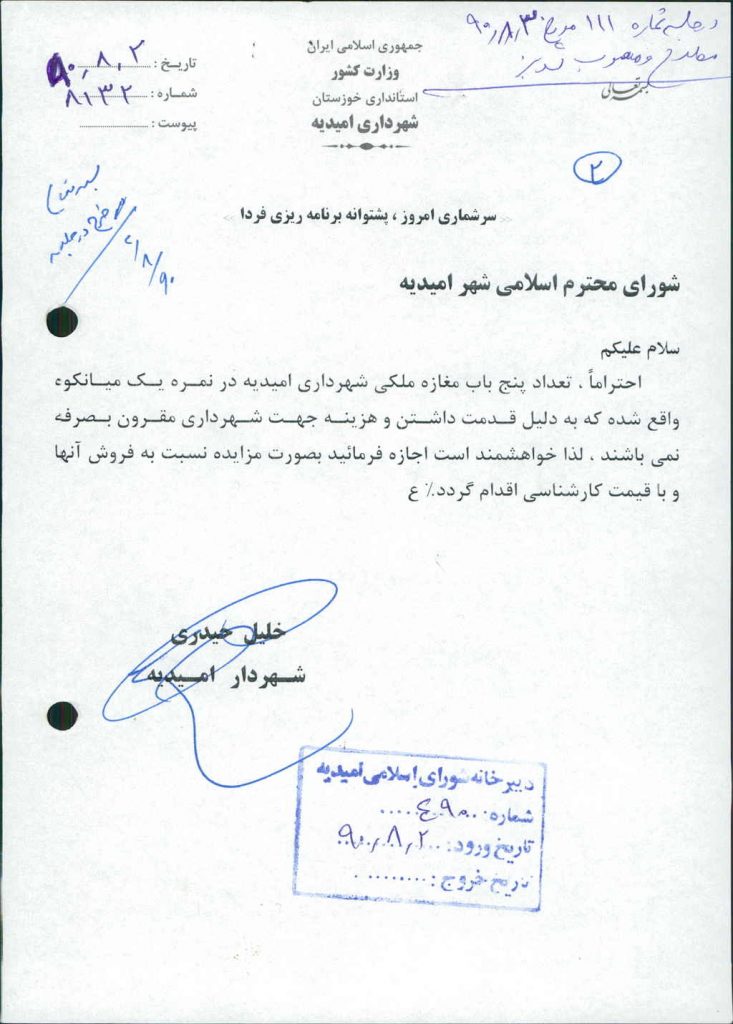 در جلسه شماره ۱۱۱ مورخ ۹۰/۸/۳
مطرح و مصوب گردید
بسمه تعالی
جمهوری اسلامی ایران
وزارت کشور
استانداری خوزستان
شهرداری امیدیه
تاریـخ : ۹۰/۸/۲
شمـاره : ۸۱۳۲
پیوست :
۲
بسمه تعالی
طرح در جلسه
۹۰/۸/۲
سرشماری امروز ، پشتوانه برنامه ریزی فردا
شورای محترم اسلامی شهر امیدیه
سلام علیکم
احتراماً ، تعداد پنج باب مغازه ملکی شهرداری امیدیه در نمره یک میانکوه
واقع شده که به دلیل قدمت داشتن و هزینه جهت شهرداری مقرون بصرفه
نمی باشند ، لذا خواهشمند است اجازه فرمائید بصورت مزایده نسبت به فروش آنها
و با قیمت کارشناسی اقدام گردد٪ ع
خلیل حیدری
شهردار امیدیه
دبیرخانه شورای اسلامی امیدیه
شماره: ۴۹۰
تاریخ ورود: ۹۰/۸/۲
تاریخ خروج :